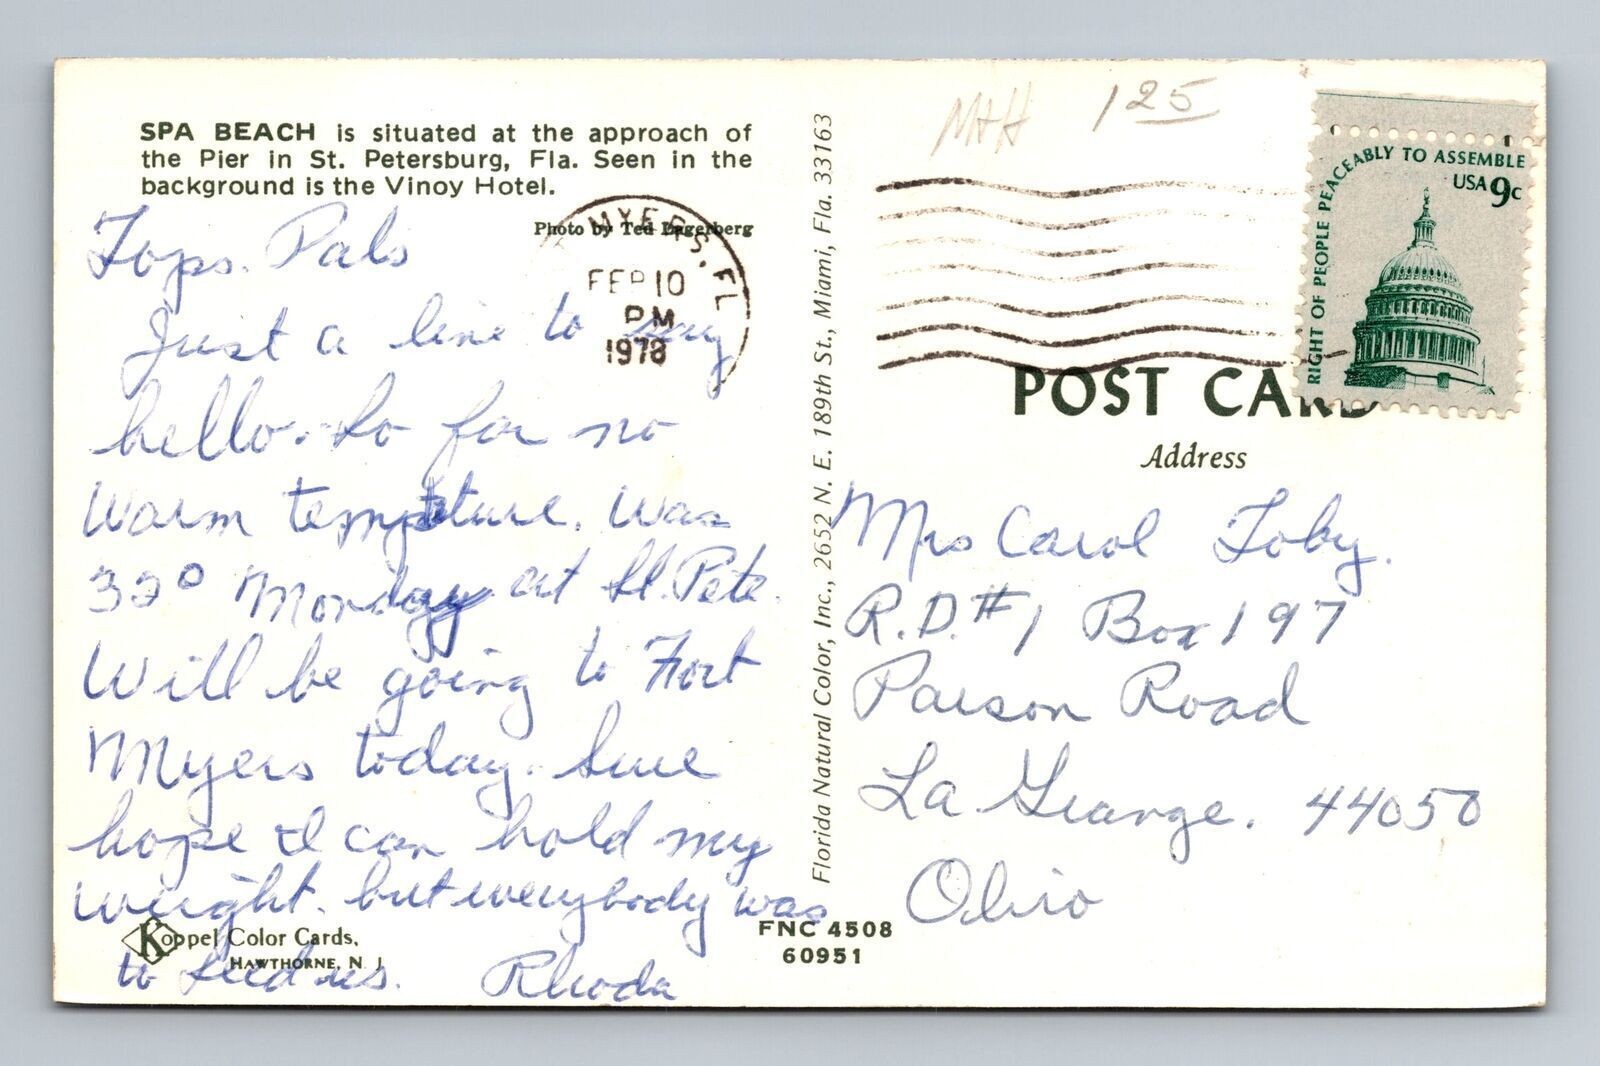 SPA BEACH is situated at the approach of
the Pier in St. Petersburg, Fla. Seen in the
background is the Vinoy Hotel.
Photo by Ted Lagerberg
MYERS, FL
FEB 10
PM
1978
Tops. Pals
Just a line to say
hello. So far no
warm tempature. was
32° Monday at St. Pete.
Will be going to Fort
Myers today. Sure
hope I can hold my
weight. but everybody was
to feed us. Rhoda
Koppel Color Cards,
HAWTHORNE, N. J.
FNC 4508
60951
Florida Natural Color, Inc., 2652 N. E. 189th St., Miami, Fla. 33163
MHH 125
RIGHT OF PEOPLE PEACEABLY TO ASSEMBLE
USA 9c
POST CARD
Address
Mrs Carol Toby.
R.D. #1 Box 197
Parson Road
La Grange. 44050
Ohio